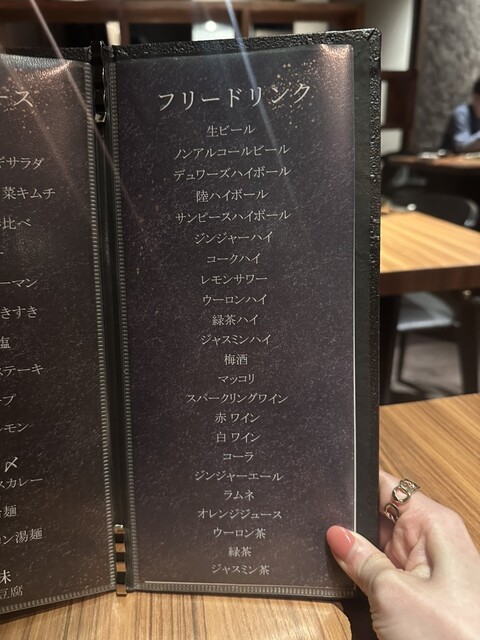 ース
ギサラダ
菜キムチ
比べ
ーマン
きすき
塩
ステーキ
ープ
レモン
〆
スカレー
麺
ン湯麺
味
豆腐
フリードリンク
生ビール
ノンアルコールビール
デュワーズハイボール
陸ハイボール
サンピースハイボール
ジンジャーハイ
コークハイ
レモンサワー
ウーロンハイ
緑茶ハイ
ジャスミンハイ
梅酒
マッコリ
スパークリングワイン
赤ワイン
白ワイン
コーラ
ジンジャーエール
ラムネ
オレンジジュース
ウーロン茶
緑茶
ジャスミン茶